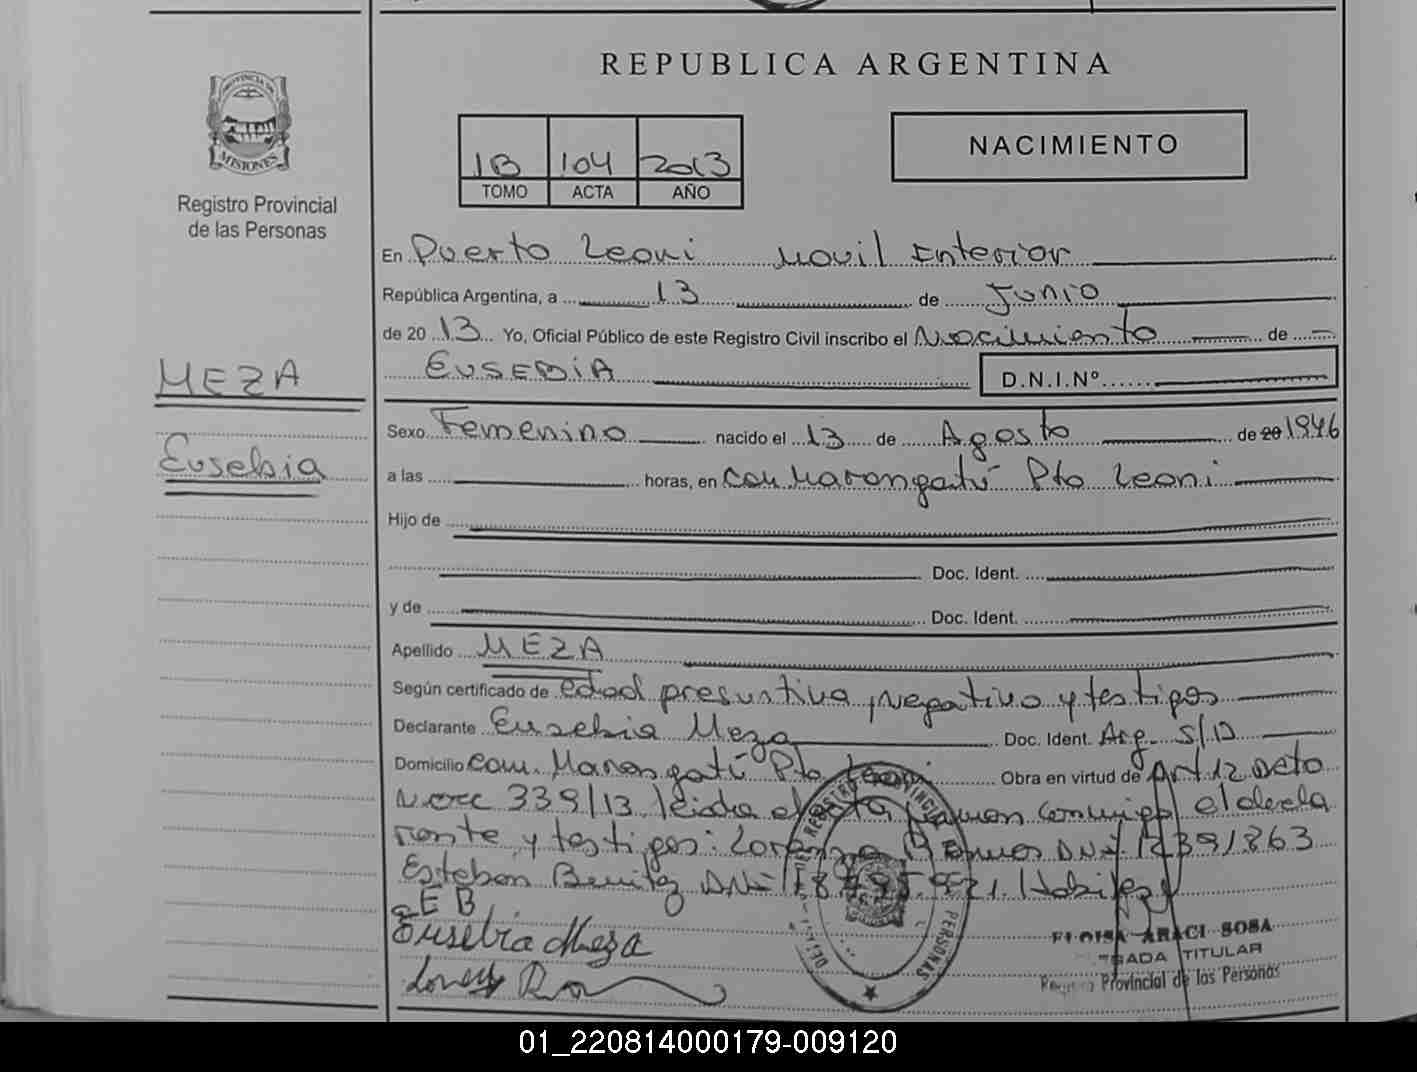 REPUBLICA ARGENTINA
PROVINCIA DE
MISIONES
Registro Provincial
de las Personas
1B 104 2013
TOMO ACTA AÑO
NACIMIENTO
En Puerto Leoni Movil Interior
República Argentina, a 13 de Junio
de 2013 Yo, Oficial Público de este Registro Civil inscribo el Nacimiento de
EUSEBIA D.N.I.Nº
MEZA
Eusebia
Sexo Femenino nacido el 13 de Agosto de 20 1946
a las horas, en Com Marangatú Pto Leoni
Hijo de
Doc. Ident.
y de Doc. Ident.
Apellido MEZA
Según certificado de edad presuntiva, negativo y testigos
Declarante Eusebia Meza Doc. Ident. Arg. S/D
Domicilio Com. Marangatú Pto Leoni Obra en virtud de Art 12 Dcto
339/13 leida el acta firman conmigo el decla
rante y testigos: Lorenzo Ramos DNI
Esteban Benitez DNI
EB
Eusebia Meza
REGISTRO PROVINCIAL DE LAS PERSONAS
ELOISA ARACI SOSA
TITULAR
Registro Provincial de las Personas
01_220814000179-009120